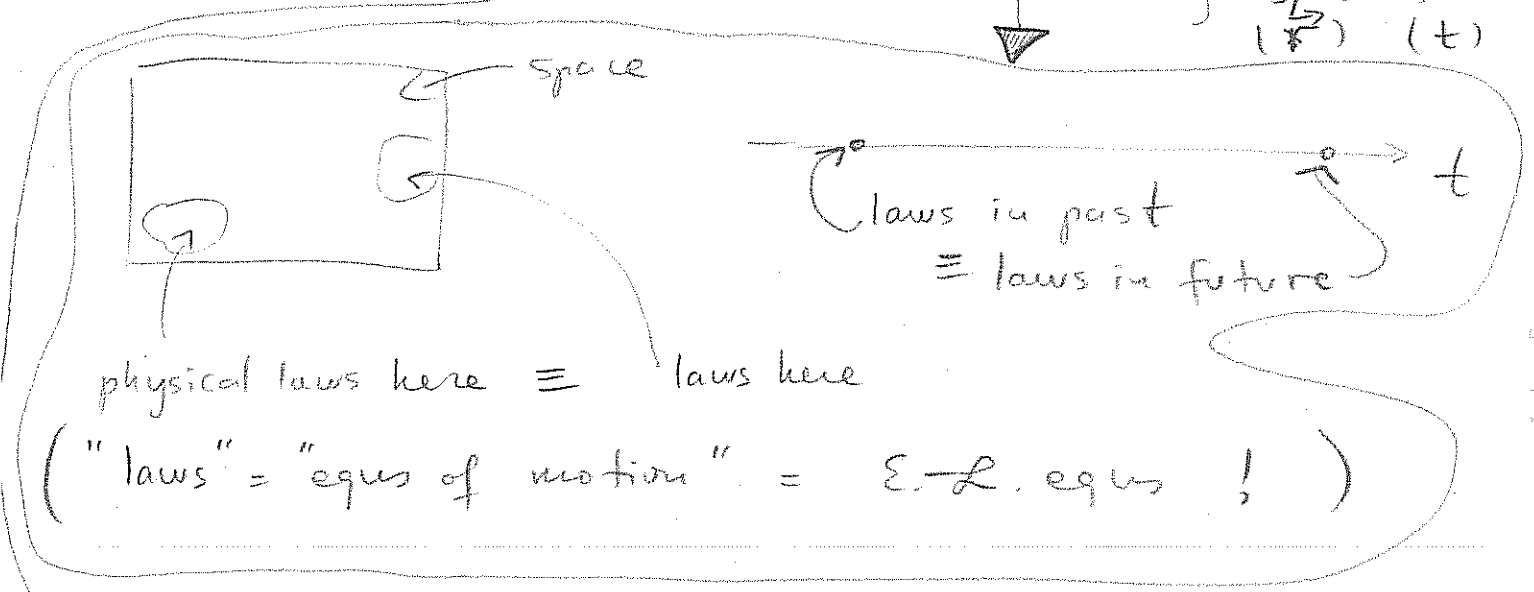 (r⃗) (t)
space
t
laws in past
≡ laws in future
physical laws here ≡ laws here
("laws" = "eqns of motion" = E.-L. eqns !)